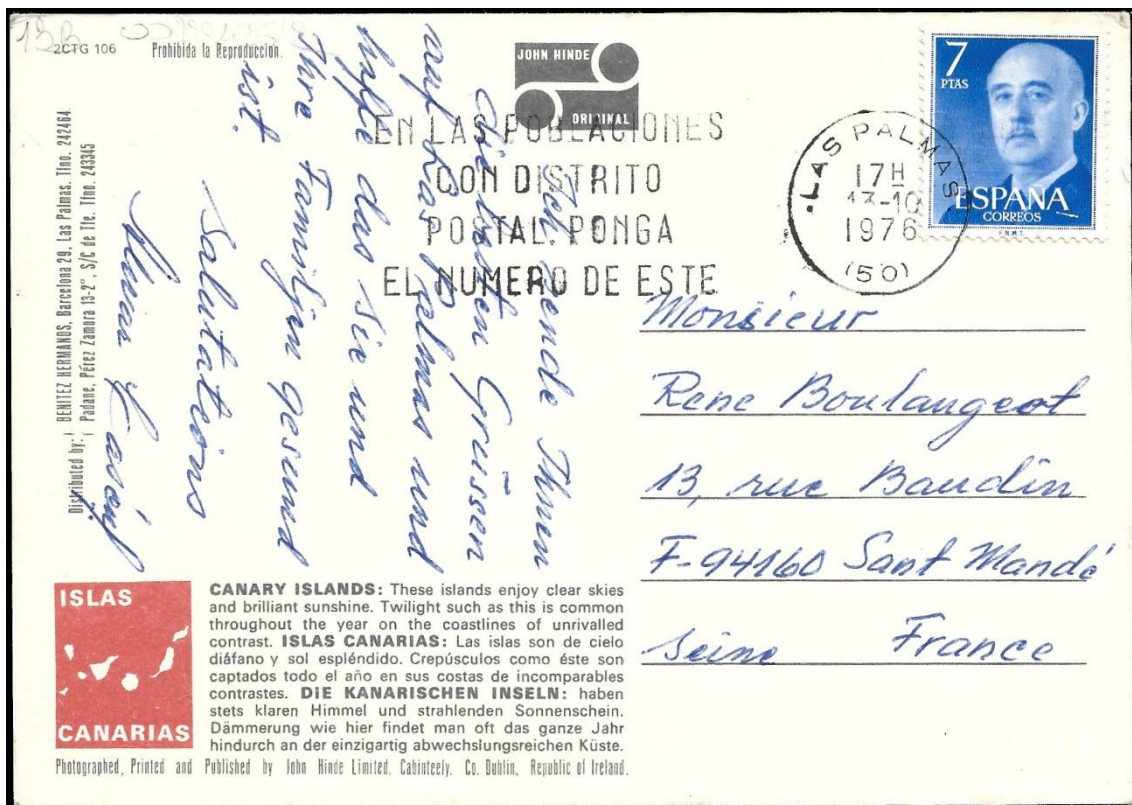 2CTG 106
Prohibida la Reproduccion.
JOHN HINDE
ORIGINAL
7
PTAS
ESPAÑA
CORREOS
F.N.M.T.
LAS PALMAS
17H
13-10
1976
(50)
EN LAS POBLACIONES
CON DISTRITO
POSTAL, PONGA
EL NUMERO DE ESTE
Distributed by: BENITEZ HERMANOS, Barcelona 29. Las Palmas. Tfno. 242464.
Padane, Pérez Zamora 13-2°, S/C de Tfe. Tfno. 243345
Ich sende Ihnen
die besten Grüssen
auf Las Palmas und
hoffe das Sie und
Ihre Familjen gesund
ist.
Salutations
Monsieur
Rene Boulangeot
13, rue Baudin
F-94160 Sant Mandé
Seine France
ISLAS
CANARIAS
CANARY ISLANDS: These islands enjoy clear skies
and brilliant sunshine. Twilight such as this is common
throughout the year on the coastlines of unrivalled
contrast. ISLAS CANARIAS: Las islas son de cielo
diáfano y sol espléndido. Crepúsculos como éste son
captados todo el año en sus costas de incomparables
contrastes. DIE KANARISCHEN INSELN: haben
stets klaren Himmel und strahlenden Sonnenschein.
Dämmerung wie hier findet man oft das ganze Jahr
hindurch an der einzigartig abwechslungsreichen Küste.
Photographed, Printed and Published by John Hinde Limited, Cabinteely, Co. Dublin, Republic of Ireland.